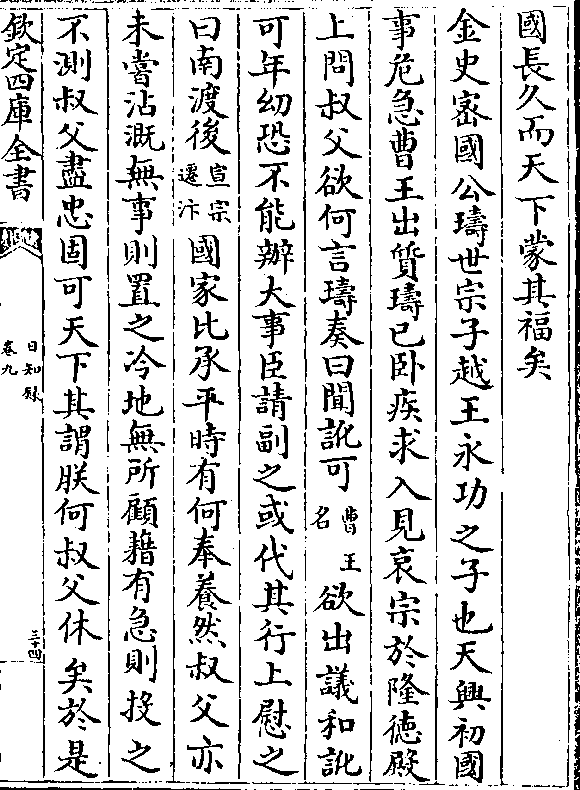 國長久而天下蒙其福矣
金史宻國公璹世宗子越王永功之子也天興初國
事危急曹王出質璹已卧疾求入見哀宗於隆徳殿
上問叔父欲何言璹奏曰聞訛可曹王名欲出議和訛
可年幼恐不能辦大事臣請副之或代其行上慰之
曰南渡後宣宗遷汴國家比承平時有何奉養然叔父亦
未嘗沾溉無事則置之冷地無所顧藉有急則投之
不測叔父盡忠固可天下其謂朕何叔父休矣於是
欽定四庫全書
日知録
卷九
三十四